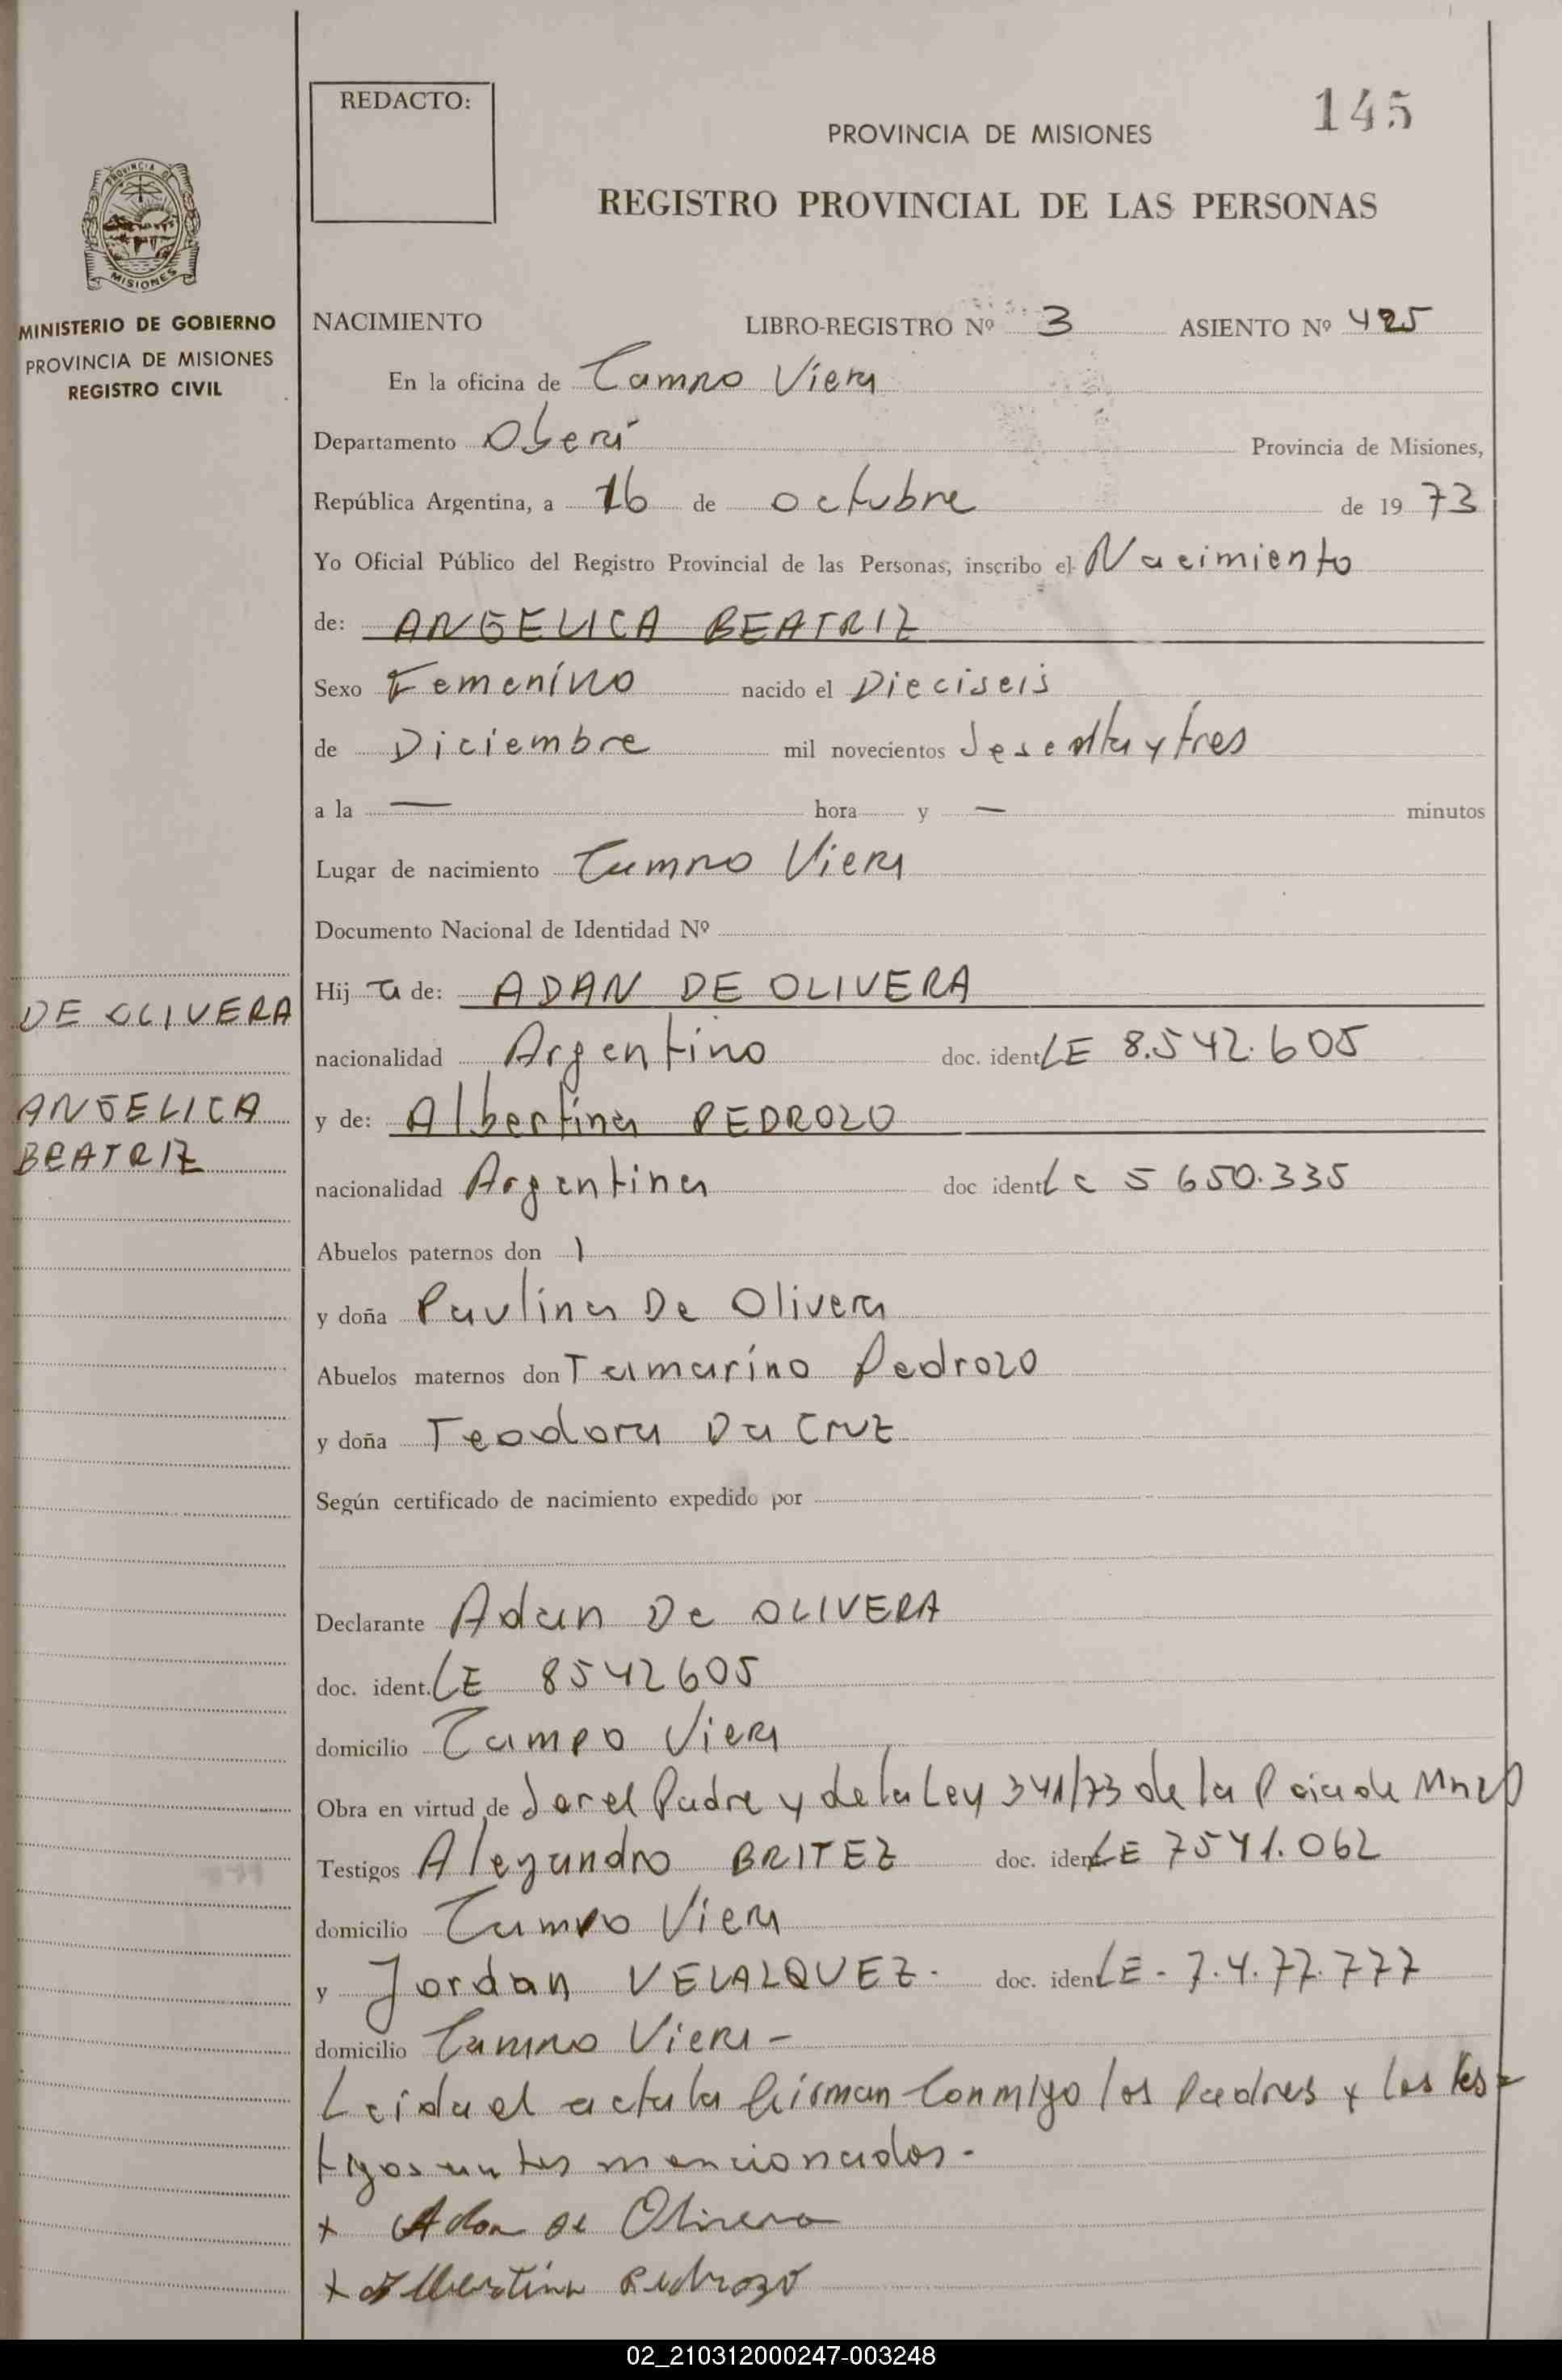 145
REDACTO:
PROVINCIA DE MISIONES
REGISTRO PROVINCIAL DE LAS PERSONAS
PROVINCIA DE
MISIONES
MINISTERIO DE GOBIERNO
PROVINCIA DE MISIONES
REGISTRO CIVIL
NACIMIENTO LIBRO-REGISTRO Nº 3 ASIENTO Nº 425
En la oficina de Campo Viera
Departamento Oberá Provincia de Misiones,
República Argentina, a 16 de octubre de 19 73
Yo Oficial Público del Registro Provincial de las Personas, inscribo el Nacimiento
de: ANGELICA BEATRIZ
Sexo Femenino nacido el Dieciseis
de Diciembre mil novecientos sesenta y tres
a la — hora y — minutos
Lugar de nacimiento Campo Viera
Documento Nacional de Identidad Nº
Hij a de: ADAN DE OLIVERA
DE OLIVERA
nacionalidad Argentino doc. ident LE 8.542.605
ANGELICA
BEATRIZ
y de: Albertina PEDROZO
nacionalidad Argentina doc ident Lc 5 650.335
Abuelos paternos don
y doña Paulina De Olivera
Abuelos maternos don Tamarino Pedrozo
y doña Teodora Da Cruz
Según certificado de nacimiento expedido por
Declarante Adan De OLIVERA
doc. ident. LE 8542605
domicilio Campo Viera
Obra en virtud de ser el Padre y de la Ley 341/73 de la Pcia de
Testigos Alejandro BRITEZ doc. iden LE 7541.062
domicilio Campo Viera
y Jordan VELALQUEZ. doc. iden LE - 7.4.77.777
domicilio Campo Viera -
Leida el acta la firman conmigo los padres y los tes=
tigos antes mencionados.
x Adan de Olivera
x Albertina Pedrozo
02_210312000247-003248